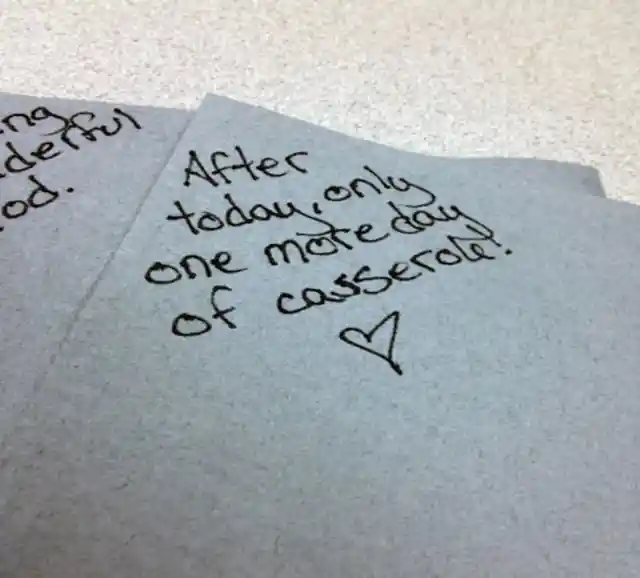 ng
derful
od.
After
today, only
one more day
of casserole!